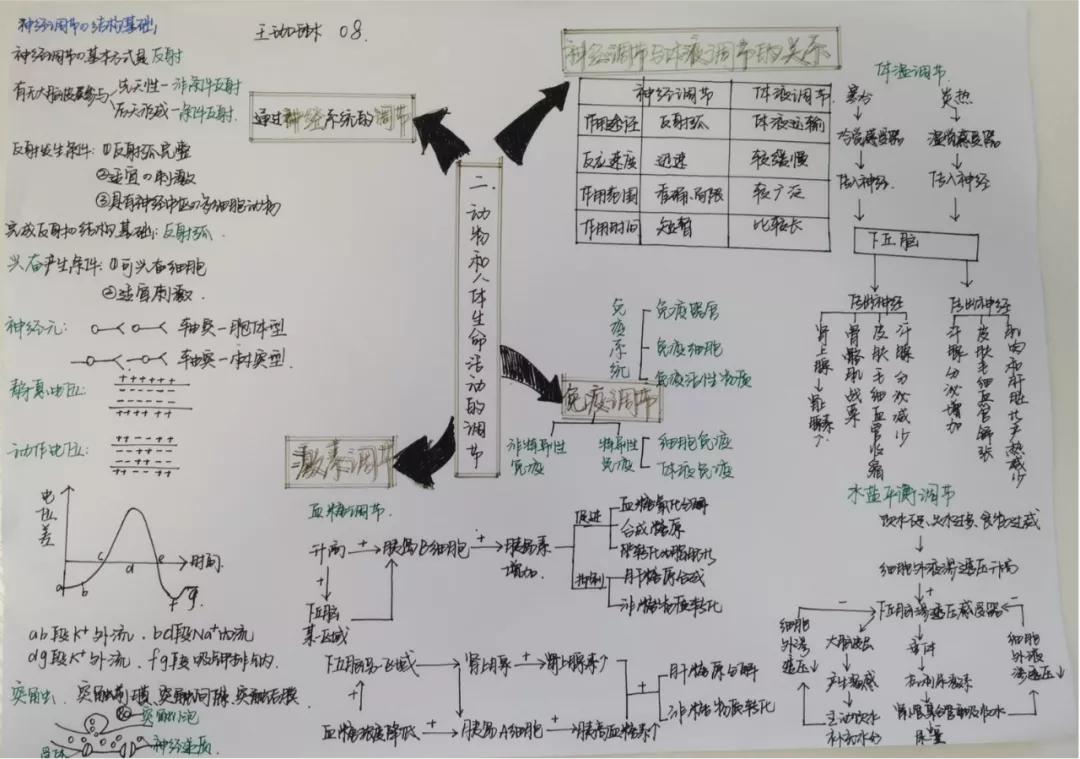 神经调节の结构基础
神经调节の基本方式是反射
有无大脑皮层参与
先天性—非条件反射
后天形成—条件反射
反射发生条件: ①反射弧完整
②适宜の刺激
③具有神经中枢の多细胞动物
完成反射の结构基础: 反射弧.
兴奋产生条件: ①可兴奋细胞
②适宜刺激.
神经元:
轴突—胞体型
轴突—树突型
静息电位:
++++++
----
----
++++++
动作电位:
++--++
--++--
--++--
++--++
电位差
a b c d e f g
时间
ab段K⁺外流. bd段Na⁺内流
dg段K⁺外流. fg段吸钾排钠.
突触: 突触前膜、突触间隙、突触后膜
突触小泡
神经递质
08.
通过神经系统的调节
二、动物和人体生命活动的调节
神经调节与体液调节的关系
神经调节 体液调节
作用途径 反射弧 体液运输
反应速度 迅速 较缓慢
作用范围 准确、局限 较广泛
作用时间 短暂 比较长
体温调节
寒冷 炎热
冷觉感受器 温觉感受器
传入神经 传入神经
下丘脑
传出神经 传出神经
肾上腺→肾上腺素↑
骨骼肌战栗
皮肤毛细血管收缩
汗腺分泌减少
汗腺分泌增加
皮肤毛细血管舒张
肌肉和肝脏比产热减少
免疫系统
免疫器官
免疫细胞
免疫活性物质
免疫调节
非特异性免疫
特异性免疫
细胞免疫
体液免疫
激素调节
血糖调节.
升高 + 胰岛B细胞 + 胰岛素增加.
+
下丘脑某一区域
促进
血糖氧化分解
合成糖原
抑制
肝糖原合成
非糖物质转化
下丘脑另一区域 肾上腺 + 肾上腺素↑
+
血糖浓度降低 + 胰岛A细胞 + 胰高血糖素↑
+
肝糖原分解
非糖物质转化
水盐平衡调节
饮水不足、失水过多、食物过咸
细胞外液渗透压升高
+
下丘脑渗透压感受器
- -
细胞外渗透压↓
大脑皮层
产生渴感
主动饮水
补充水分
垂体
抗利尿激素
肾小管集合管重吸收水
尿量
细胞外液渗透压↓